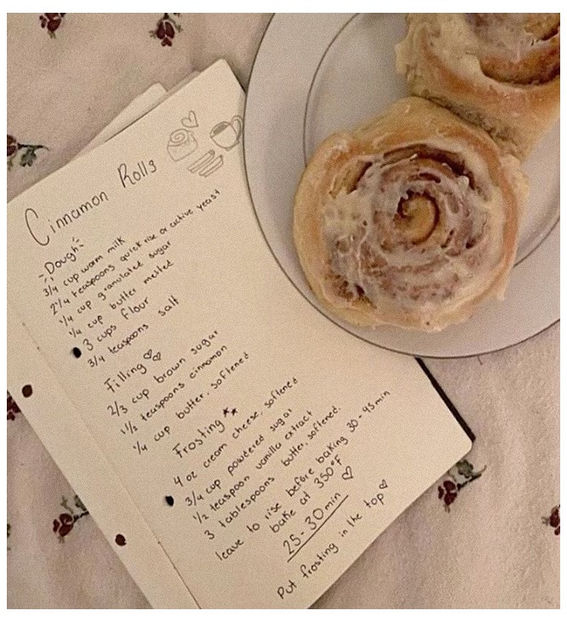 Cinnamon Rolls
-Dough-
3/4 cup warm milk
2 1/4 teaspoons quick rise or active yeast
1/4 cup granulated sugar
1/4 cup butter melted
3 cups flour
3/4 teaspoons salt
Filling ♡♡
2/3 cup brown sugar
1 1/2 teaspoons cinnamon
1/4 cup butter, softened
Frosting **
4 oz cream cheese, softened
3/4 cup powdered sugar
1/2 teaspoon vanilla extract
3 tablespoons butter, softened.
leave to rise before baking 30-45min
bake at 350°F
25-30min ♡
Put frosting in the top ♡